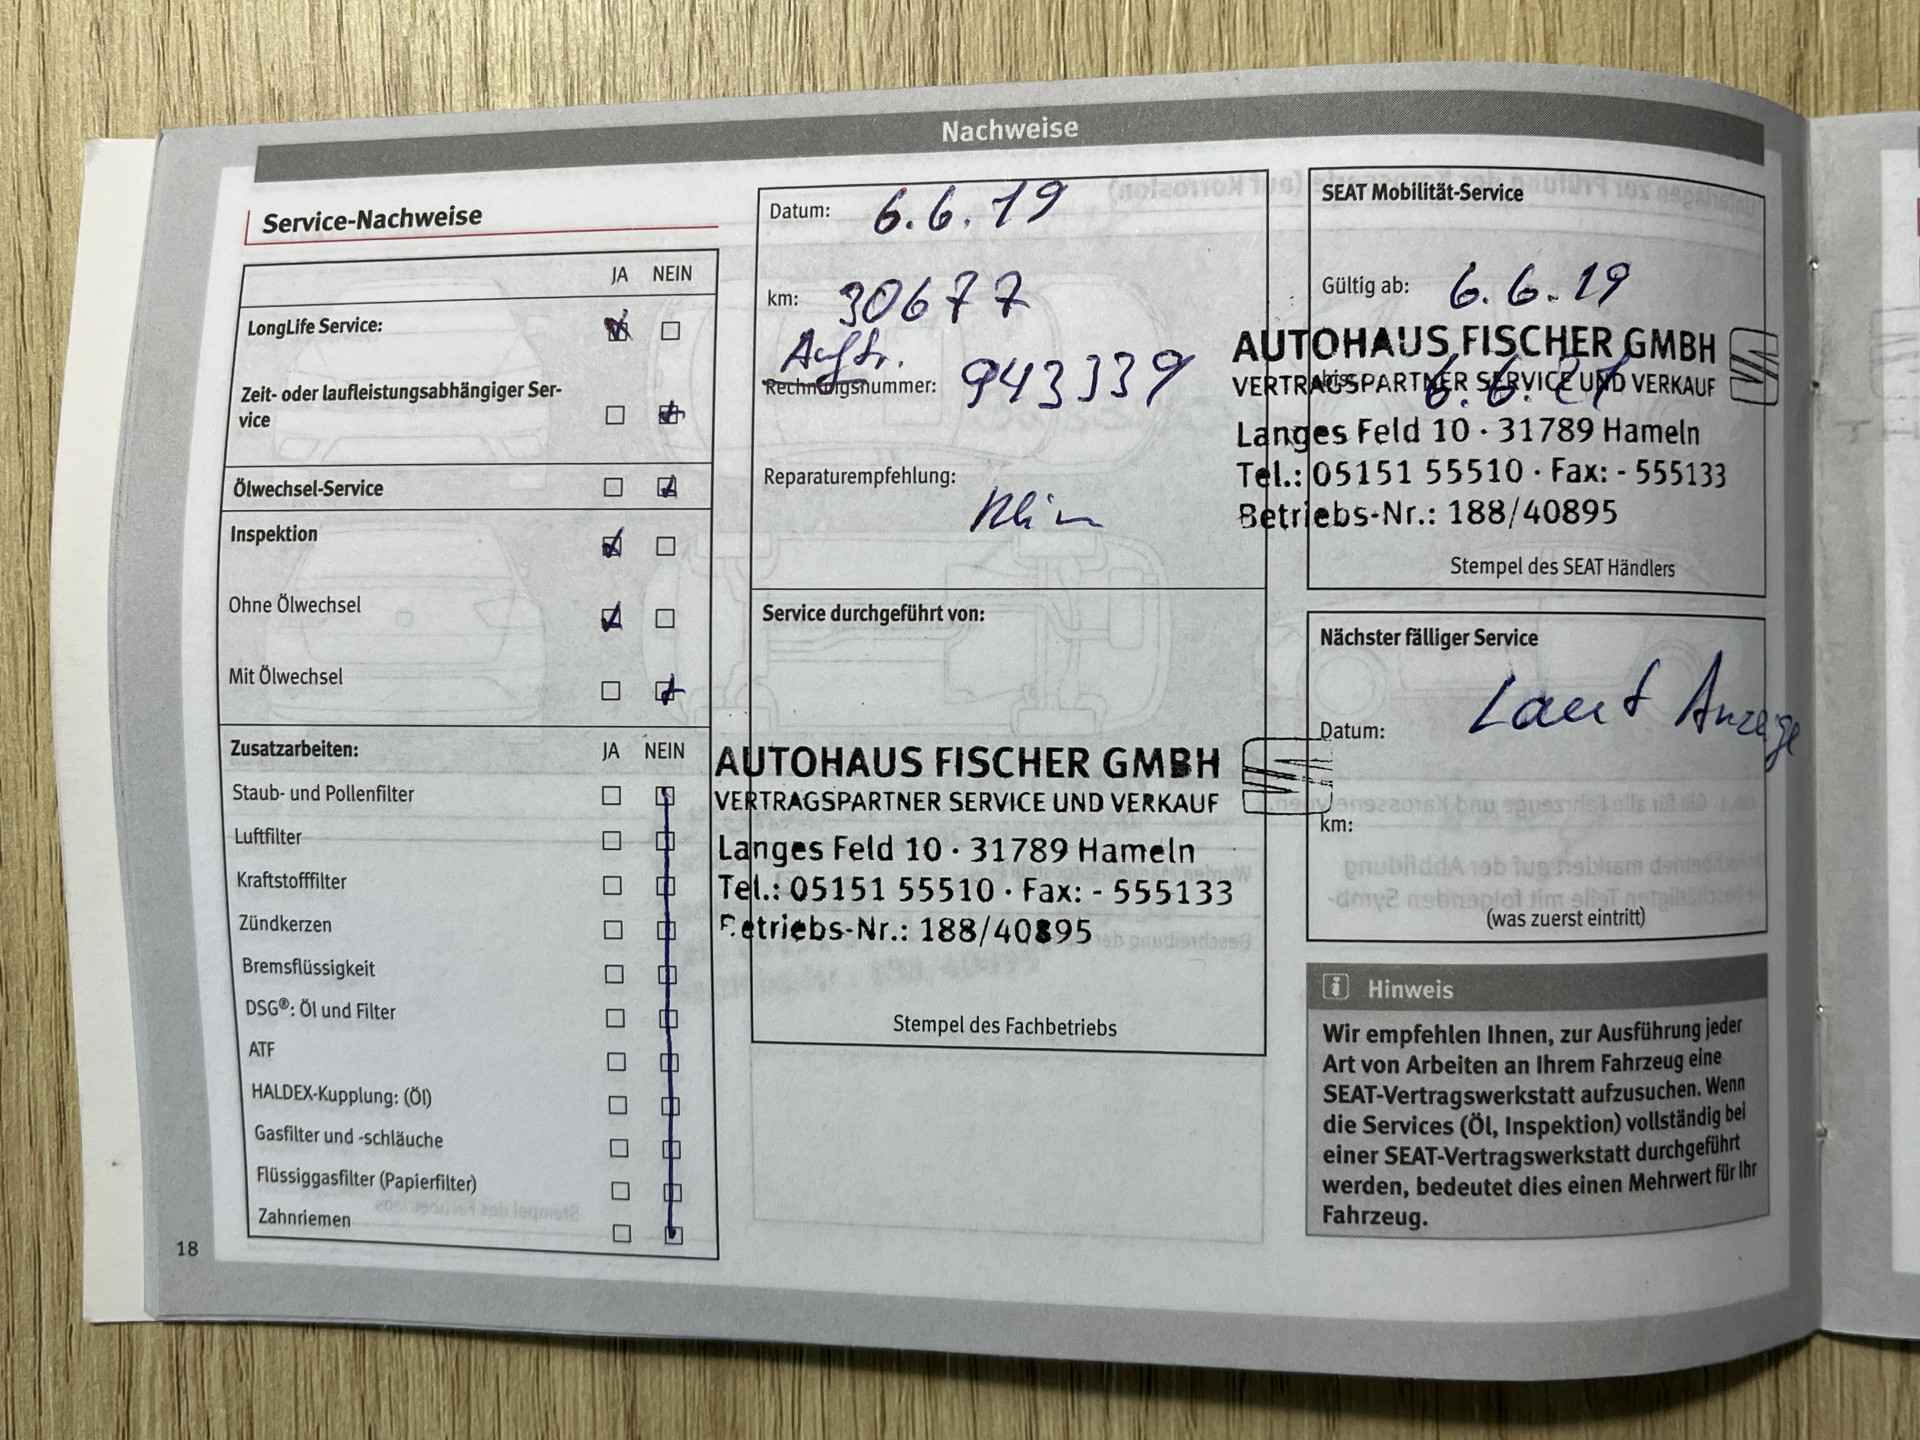 Nachweise
Service-Nachweise
JA NEIN
LongLife Service:
Zeit- oder laufleistungsabhängiger Ser-
vice
Ölwechsel-Service
Inspektion
Ohne Ölwechsel
Mit Ölwechsel
Zusatzarbeiten: JA NEIN
Staub- und Pollenfilter
Luftfilter
Kraftstofffilter
Zündkerzen
Bremsflüssigkeit
DSG®: Öl und Filter
ATF
HALDEX-Kupplung: (Öl)
Gasfilter und -schläuche
Flüssiggasfilter (Papierfilter)
Zahnriemen
18
Datum: 6.6.19
km: 30677
Auftr.
Rechnungsnummer: 943339
Reparaturempfehlung:
Service durchgeführt von:
AUTOHAUS FISCHER GMBH
VERTRAGSPARTNER SERVICE UND VERKAUF
Langes Feld 10 · 31789 Hameln
Tel.: 05151 55510 · Fax: - 555133
Betriebs-Nr.: 188/40895
Stempel des Fachbetriebs
SEAT Mobilität-Service
Gültig ab: 6.6.19
AUTOHAUS FISCHER GMBH
bis: 6.6.21
VERTRAGSPARTNER SERVICE UND VERKAUF
Langes Feld 10 · 31789 Hameln
Tel.: 05151 55510 · Fax: - 555133
Betriebs-Nr.: 188/40895
Stempel des SEAT Händlers
Nächster fälliger Service
Laut Anzeige
Datum:
km:
(was zuerst eintritt)
i Hinweis
Wir empfehlen Ihnen, zur Ausführung jeder
Art von Arbeiten an Ihrem Fahrzeug eine
SEAT-Vertragswerkstatt aufzusuchen. Wenn
die Services (Öl, Inspektion) vollständig bei
einer SEAT-Vertragswerkstatt durchgeführt
werden, bedeutet dies einen Mehrwert für Ihr
Fahrzeug.